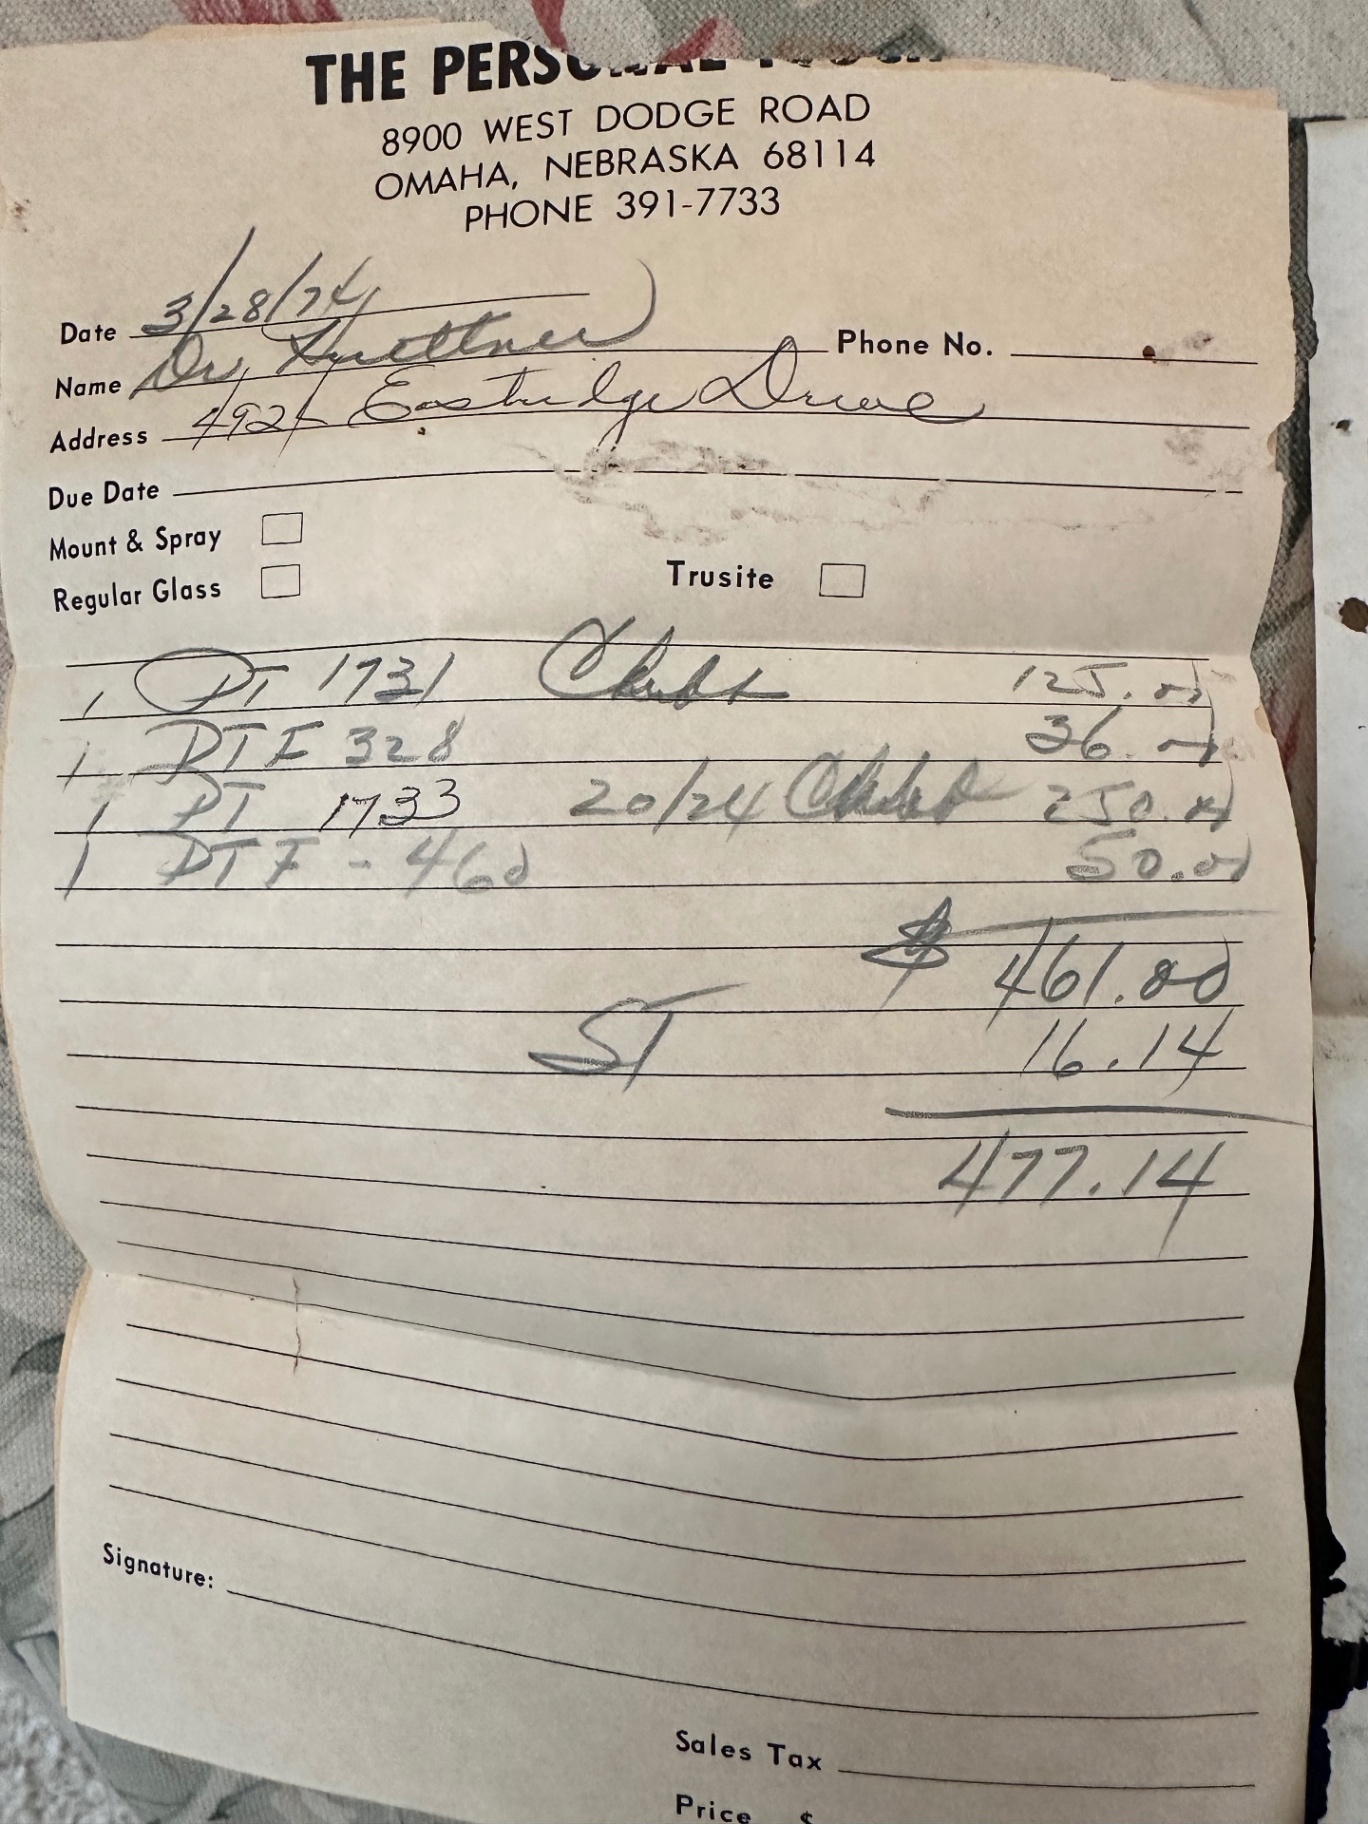 THE PERSONAL TOUCH
8900 WEST DODGE ROAD
OMAHA, NEBRASKA 68114
PHONE 391-7733
Date 3/28/74
Phone No.
Name Dr. Huettner
Address Eastridge Drive
Due Date
Mount & Spray
Regular Glass Trusite
1 PT 1731 125.00
1 DTF 328 36.00
1 PT 1733 20/24 250.00
1 DTF - 460 50.00
$ 461.00
ST 16.14
477.14
Signature:
Sales Tax
Price $